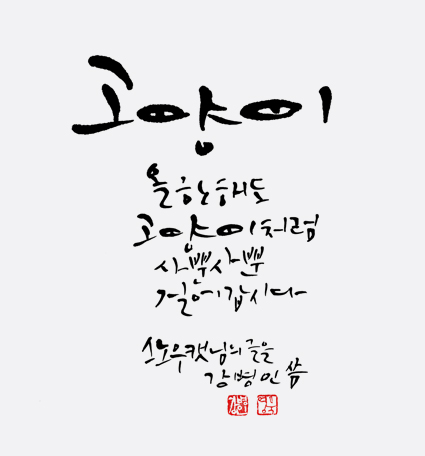 고양이
올 한해도
고양이처럼
사뿐사뿐
걸어갑시다
스노우캣님의 글을
강병인 씀